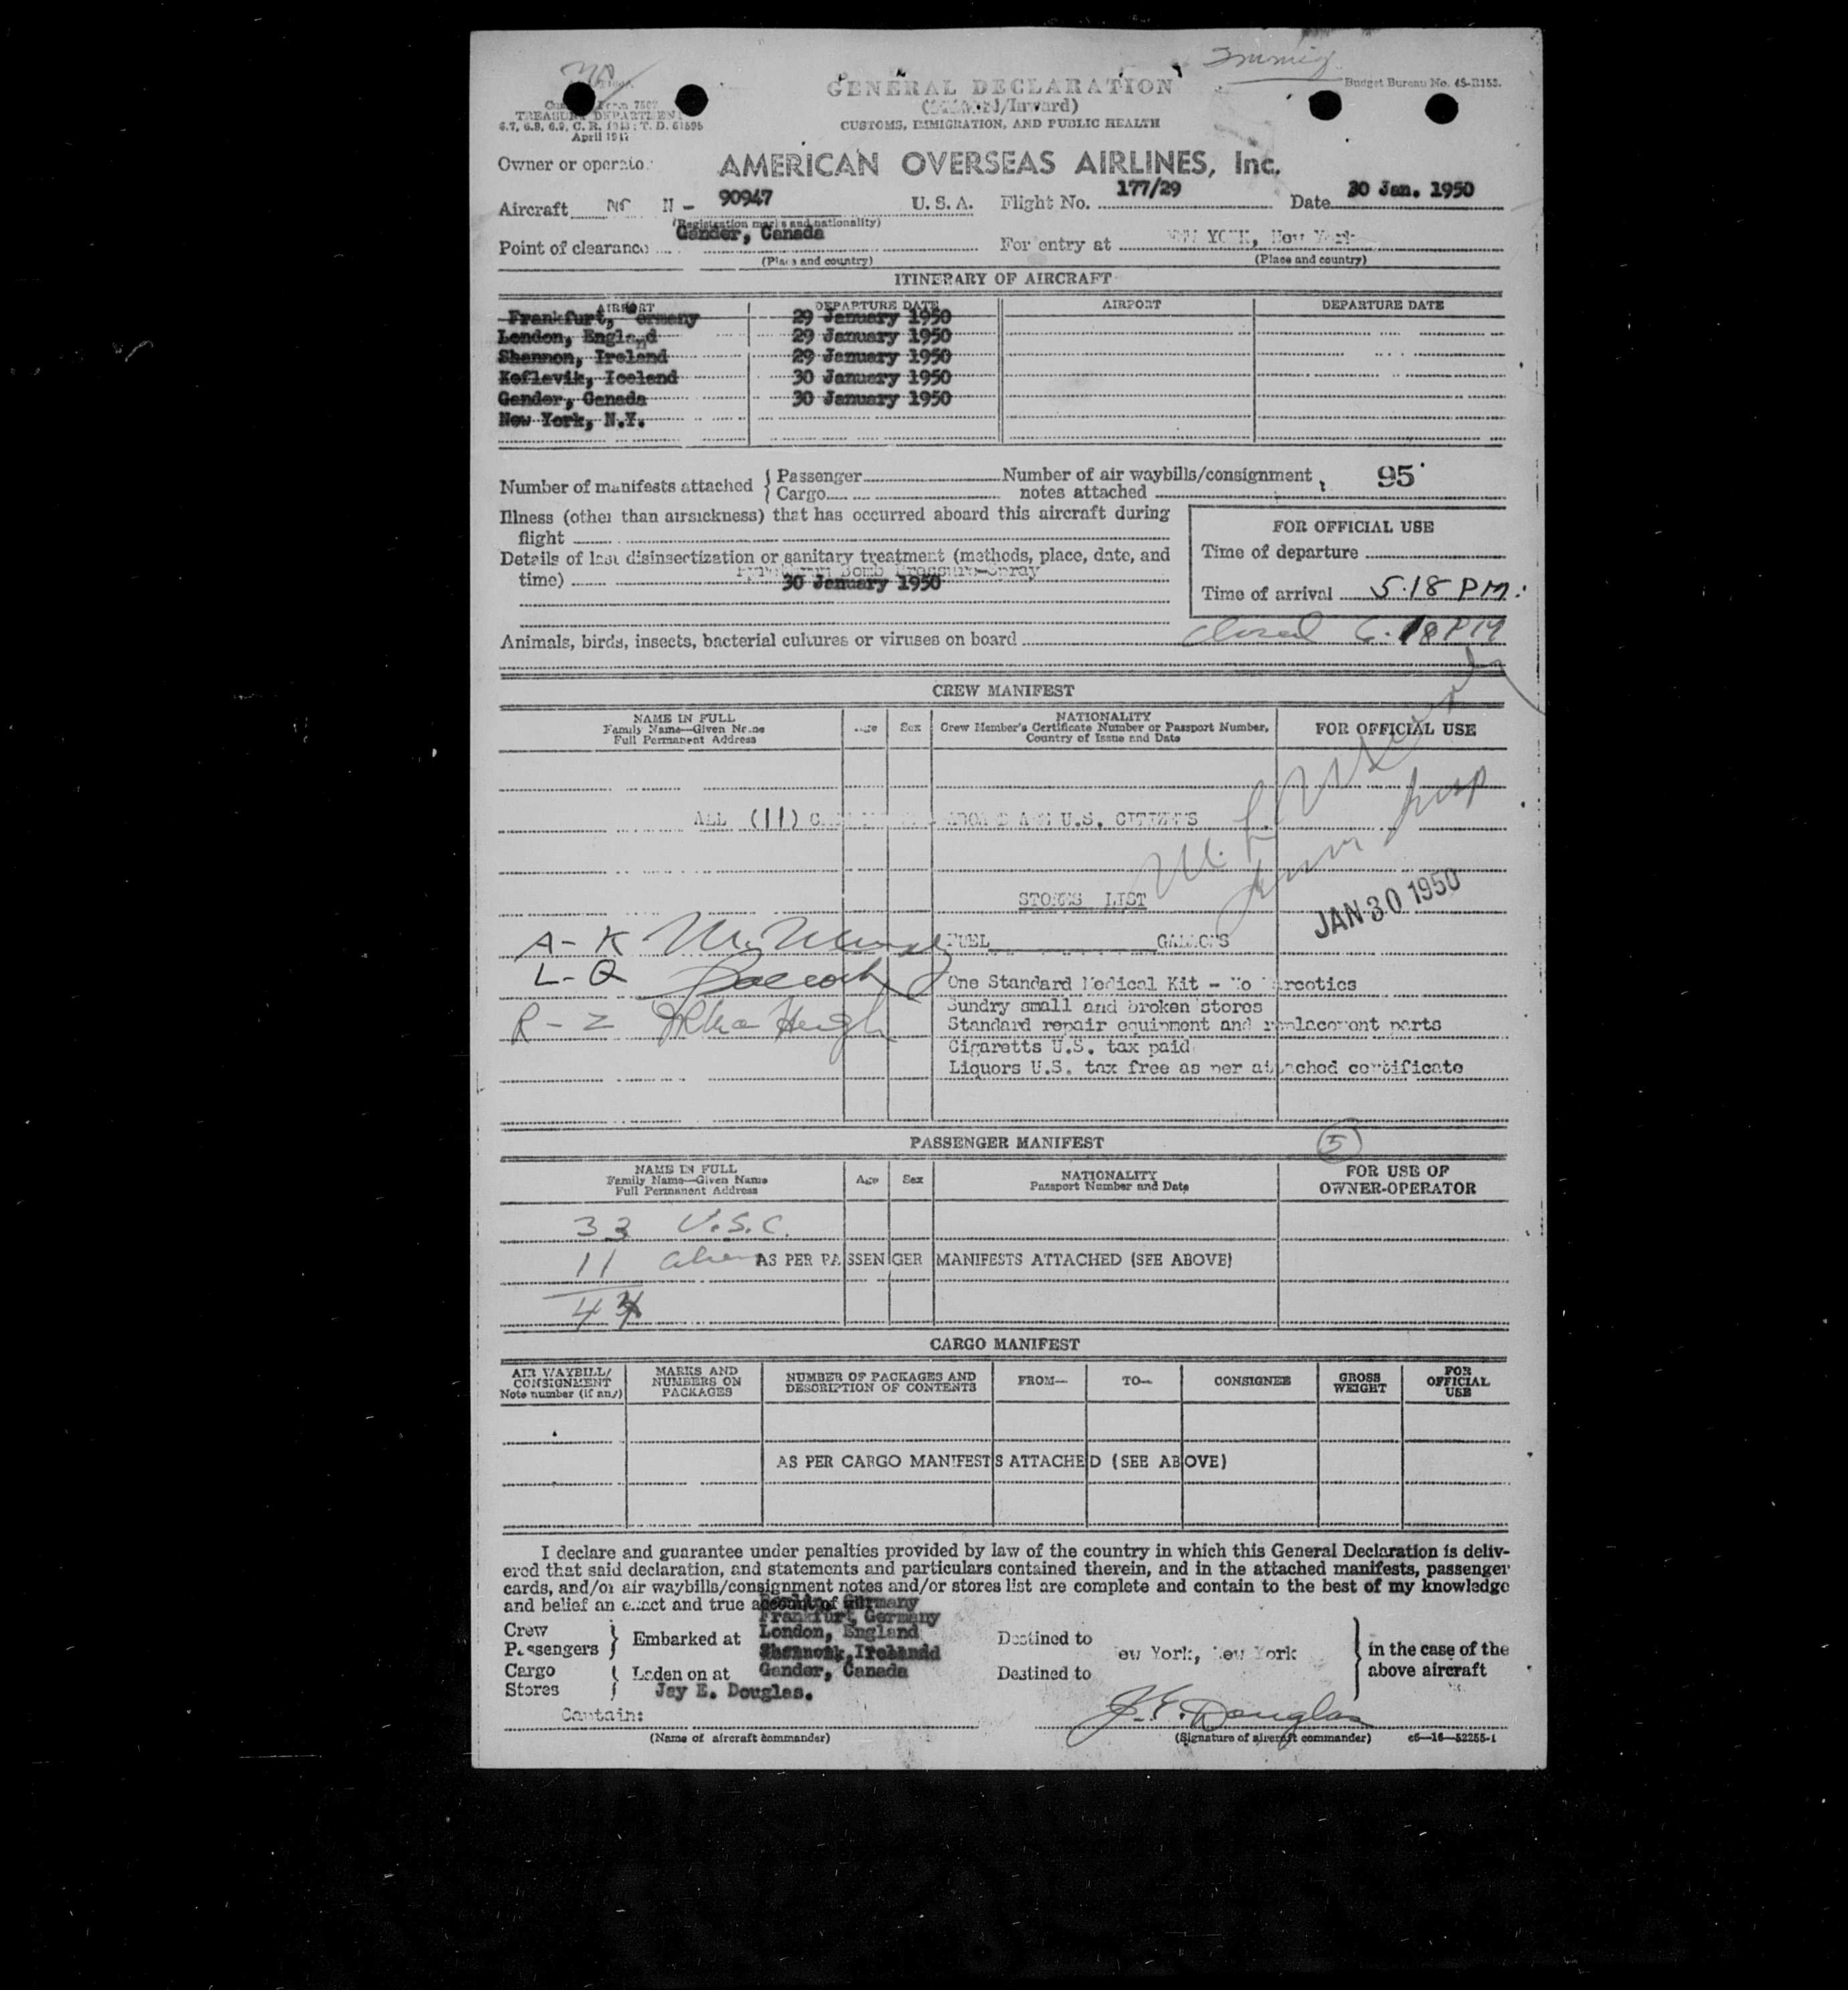 Immig
Budget Bureau No. 45-R153.
GENERAL DECLARATION
Form 7507
(/Inward)
TREASURY DEPARTMENT
CUSTOMS, IMMIGRATION, AND PUBLIC HEALTH
6.7, 6.8, 6.9, C. R. 1943; T. D. 51595
April 1947
Owner or operator AMERICAN OVERSEAS AIRLINES, Inc.
Aircraft NC N - 90947 U. S. A. Flight No. 177/29 Date 30 Jan. 1950
(Registration marks and nationality)
Point of clearance Gander, Canada For entry at NEW YORK, New York
(Place and country) (Place and country)
ITINERARY OF AIRCRAFT
AIRPORT DEPARTURE DATE AIRPORT DEPARTURE DATE
Frankfurt, ermany 29 January 1950
London, England 29 January 1950
Shannon, Ireland 29 January 1950
Keflavik, Iceland 30 January 1950
Gander, Canada 30 January 1950
New York, N.Y.
Number of manifests attached { Passenger Number of air waybills/consignment 95
Cargo notes attached
Illness (other than airsickness) that has occurred aboard this aircraft during
flight
FOR OFFICIAL USE
Time of departure
Details of last disinsectization or sanitary treatment (methods, place, date, and
time) Bomb Pressure-Spray
30 January 1950
Time of arrival 5:18 PM.
closed 6.18 PM
Animals, birds, insects, bacterial cultures or viruses on board
CREW MANIFEST
NAME IN FULL
Family Name—Given Name
Full Permanent Address
Age Sex
NATIONALITY
Crew Member's Certificate Number or Passport Number,
Country of Issue and Date
FOR OFFICIAL USE
ALL (11) ABOARD ARE U.S. CITIZENS
STORES LIST
JAN 30 1950
A - K
FUEL GALLONS
L - Q
One Standard Medical Kit - No Narcotics
Sundry small and broken stores
R - Z
Standard repair equipment and replacement parts
Cigaretts U.S. tax paid
Liquors U.S. tax free as per attached certificate
PASSENGER MANIFEST
5
NAME IN FULL
Family Name—Given Name
Full Permanent Address
Age Sex
NATIONALITY
Passport Number and Date
FOR USE OF
OWNER-OPERATOR
33 U.S.C.
11 alien AS PER PASSENGER MANIFESTS ATTACHED (SEE ABOVE)
44
CARGO MANIFEST
AIR WAYBILL/
CONSIGNMENT
Note number (if any)
MARKS AND
NUMBERS ON
PACKAGES
NUMBER OF PACKAGES AND
DESCRIPTION OF CONTENTS
FROM— TO— CONSIGNEE
GROSS
WEIGHT
FOR
OFFICIAL
USE
AS PER CARGO MANIFESTS ATTACHED (SEE ABOVE)
I declare and guarantee under penalties provided by law of the country in which this General Declaration is deliv-
ered that said declaration, and statements and particulars contained therein, and in the attached manifests, passenger
cards, and/or air waybills/consignment notes and/or stores list are complete and contain to the best of my knowledge
and belief an exact and true account of Germany
Frankfurt, Germany
Crew
Passengers } Embarked at London, England Destined to
Shannon, Ireland
ew York, New York } in the case of the
above aircraft
Cargo
Stores } Laden on at Gander, Canada Destined to
Jay E. Douglas.
Captain: J. E. Douglas
(Name of aircraft commander) (Signature of aircraft commander) c5—16—52255-1